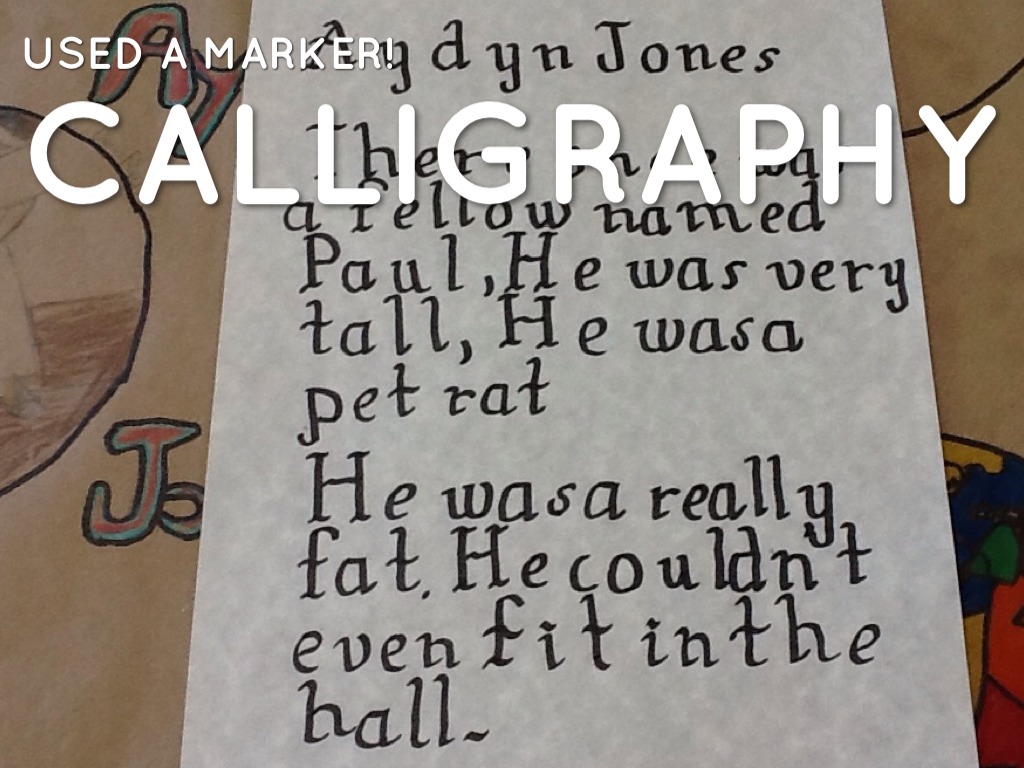 USED A MARKER!
CALLIGRAPHY
Aydyn Jones
There once was
a fellow named
Paul, He was very
tall, He wasa
pet rat
He wasa really
fat. He couldn't
even fit in the
hall~
Ay
Jo